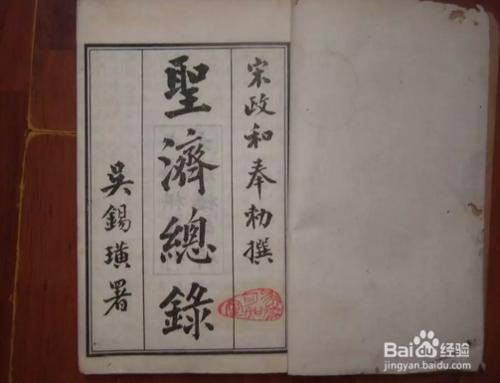 宋政和奉勅撰
聖濟總錄
吳錫璜署
Bai 经验
jingyan.baidu.com